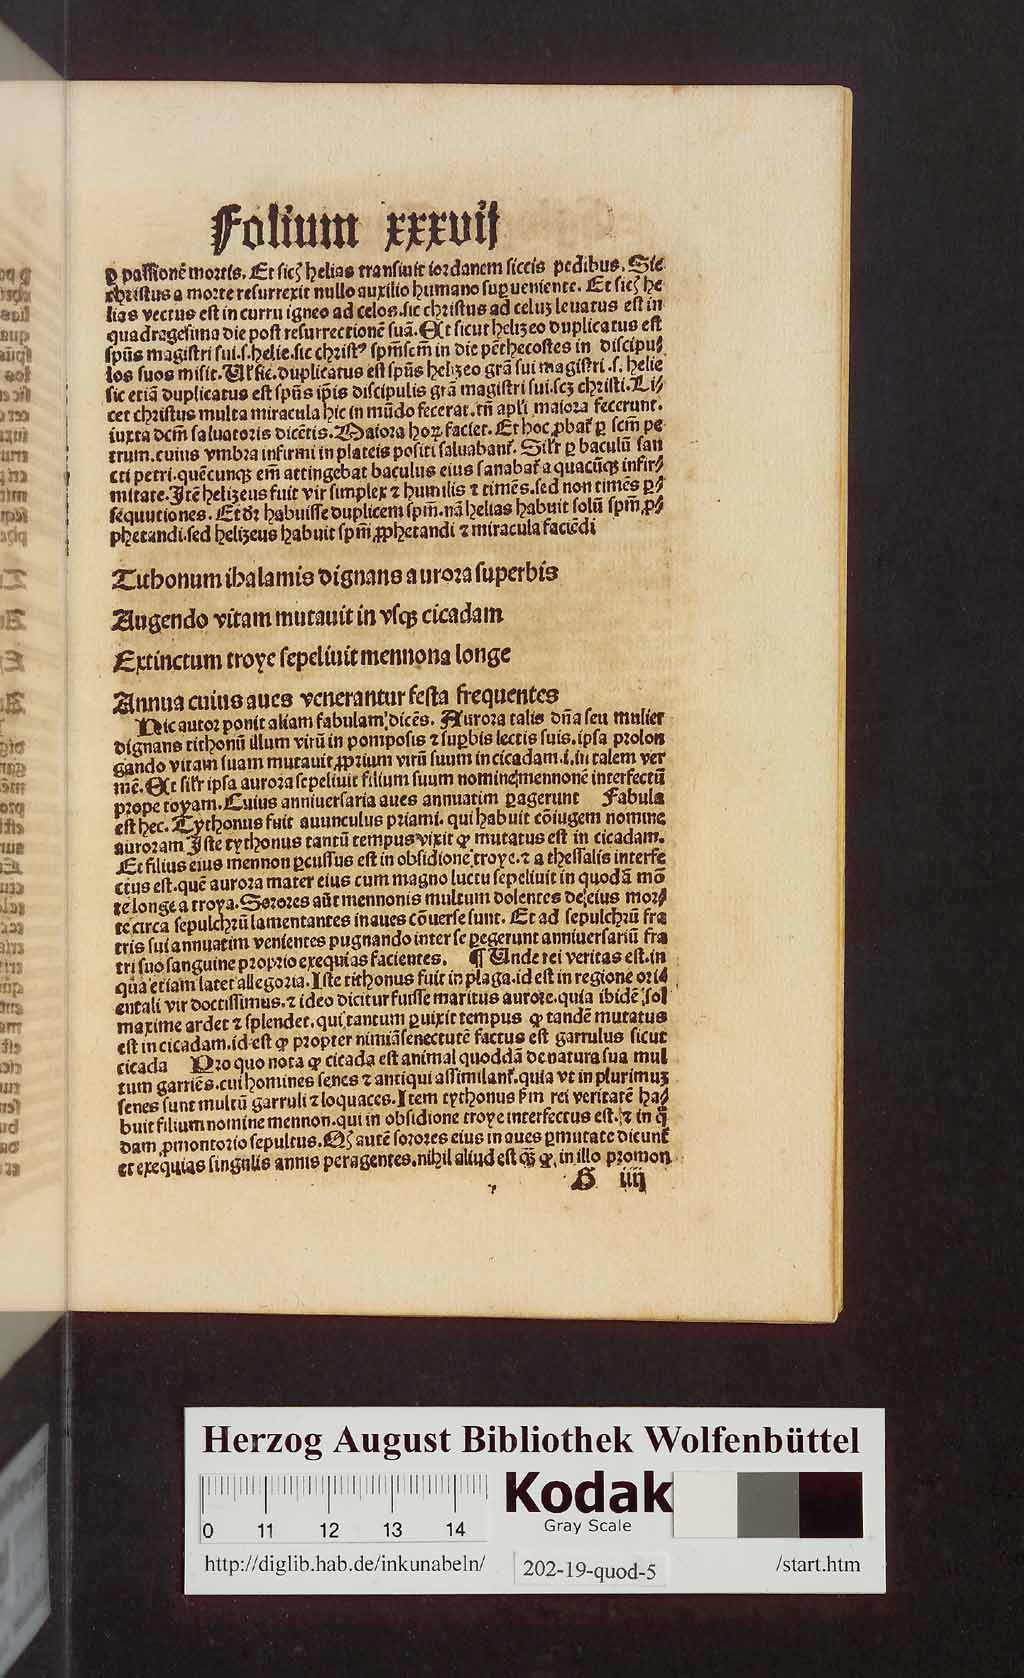 Folium xxxvij
ꝑ passionē mortis. Et sicꝫ helias transiuit iordanem siccis pedibus. Sic
christus a morte resurrexit nullo auxilio humano suꝑueniente. Et sicꝫ he
lias vectus est in curru igneo ad celos. sic christus ad celuꝫ leuatus est in
quadragesima die post resurrectionē suā. Et sicut helizeo duplicatus est
spūs magistri sui .s. helie. sic christꝰ spm̄scm̄ in die pēthecostes in discipu⸗
los suos misit. Vl̄ sic. duplicatus est spūs helizeo grā sui magistri .s. helie
sic etiā duplicatus est spūs ip̄is discipulis grā magistri sui. scꝫ christi. Li⸗
cet christus multa miracula hic in mūdo fecerat. tn̄ apl̓i maiora fecerunt.
iuxta dcm̄ saluatoris dicētis. Maiora hoꝝ faciet. Et hoc ꝓbat̓ ꝑ scm̄ pe
trum. cuius vmbra infirmi in plateis positi saluabant̓. Sil̓r ꝑ baculū san
cti petri. quēcunqꝫ em̄ attingebat baculus eius sanabat̓ a quacūqꝫ infir⸗
mitate. Itē helizeus fuit vir simplex ⁊ humilis ⁊ timēs. sed non timēs ꝑ⸗
sequutiones. Et dr̄ habuisse duplicem spm̄. nā helias habuit solū spm̄ ꝓ⸗
phetandi. sed helizeus habuit spm̄ ꝓphetandi ⁊ miracula faciēdi
Tithonum thalamis dignans aurora superbis
Augendo vitam mutauit in vsqꝫ cicadam
Extinctum troye sepeliuit mennona longe
Annua cuius aues venerantur festa frequentes
Hic autor ponit aliam fabulam, dicēs. Aurora talis dn̄a seu mulier
dignans tithonū illum virū in pomposis ⁊ suꝑbis lectis suis. ipsa prolon
gando vitam suam mutauit ꝓprium virū suum in cicadam .i. in talem ver
mē. Et sil̓r ipsa aurora sepeliuit filium suum nomine mennonē interfectū
prope toyam. Cuius anniuersaria aues annuatim ꝑagerunt Fabula
est hec. Tythonus fuit auunculus priami. qui habuit cōiugem nomine
auroram Iste tythonus tantū tempus vixit ꝙ mutatus est in cicadam.
Et filius eius mennon ꝑcussus est in obsidione troye. ⁊ a thessalis interfe
ctus est. quē aurora mater eius cum magno luctu sepeliuit in quodā mō
te longe a troya. Sorores aūt mennonis multum dolentes de eius mor⸗
te circa sepulchrū lamentantes in aues cōuerse sunt. Et ad sepulchrū fra
tris sui annuatim venientes pugnando inter se ꝑegerunt anniuersariū fra
tri suo sanguine proprio exequias facientes. ¶ Unde rei veritas est. in
qua etiam latet allegoria. Iste tithonus fuit in plaga. id est in regione ori⸗
entali vir doctissimus. ⁊ ideo dicitur fuisse maritus aurore. quia ibidē sol
maxime ardet ⁊ splendet. qui tantum ꝑuixit tempus ꝙ tandē mutatus
est in cicadam. id est ꝙ propter nimiā senectutē factus est garrulus sicut
cicada Pro quo nota ꝙ cicada est animal quoddā de natura sua mul
tum garriēs. cui homines senes ⁊ antiqui assimilant̓. quia vt in plurimuꝫ
senes sunt multū garruli ⁊ loquaces. Item tythonus ẜm rei veritatē ha⸗
buit filium nomine mennon. qui in obsidione troye interfectus est. ⁊ in q̄
dam ꝓmontorio sepultus. Qꝫ autē sorores eius in aues ꝑmutate dicunt̓
et exequias singulis annis peragentes. nihil aliud est qꝫ̄ ꝙ in illo promon
G iiij
Herzog August Bibliothek Wolfenbüttel
0 11 12 13 14
Kodak
Gray Scale
http://diglib.hab.de/inkunabeln/
202-19-quod-5
/start.htm